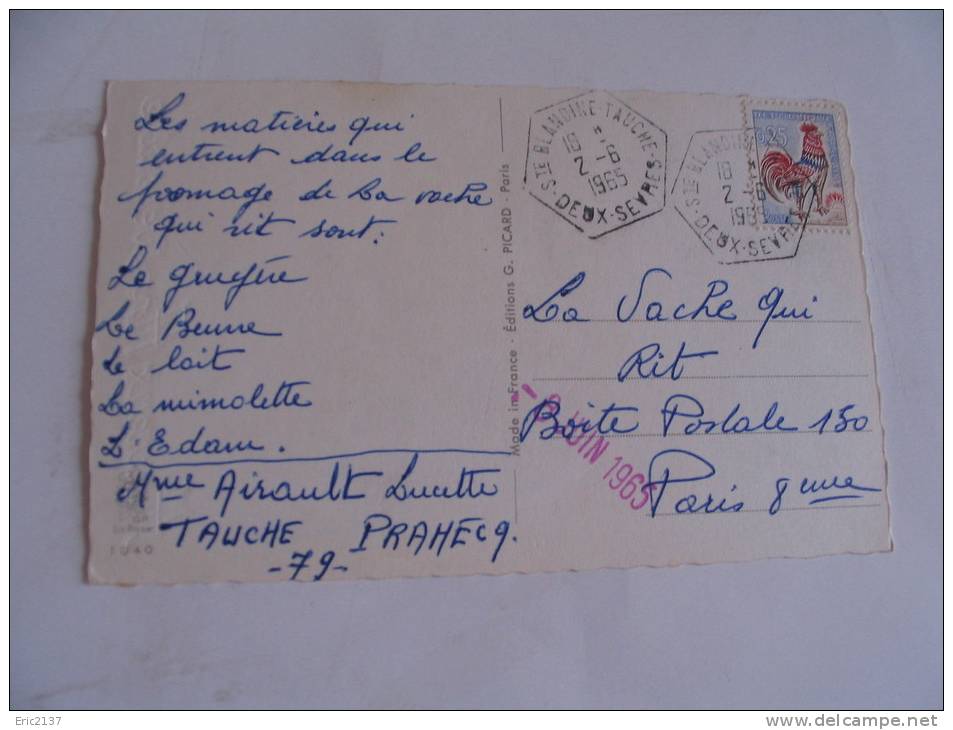 Les matières qui
entrent dans le
fromage de La vache
qui rit sont:
Le gruyère
Le Beurre
Le lait
La mimolette
L'Edam.
Mme Airault Lucette
TAUCHE PRAHECQ.
-79-
1040
Made in France - Éditions G. PICARD - Paris
STE BLANDINE-TAUCHE
18
2-6
1965
DEUX-SEVRES
STE BLANDINE
18
2-6
DEUX-SEVRES
0,25
La Vache Qui
Rit
Boîte Postale 150
Paris 8eme
JUIN 1965
Eric2137
www.delcampe.net